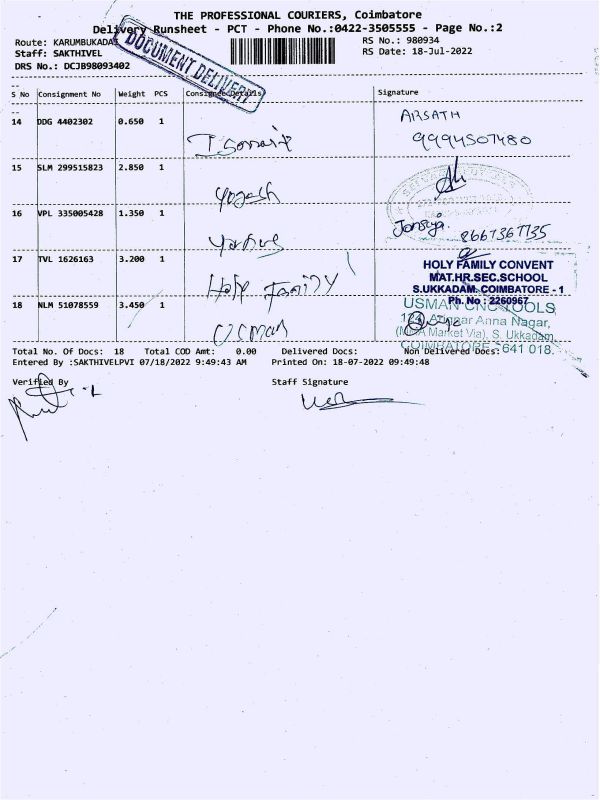 THE PROFESSIONAL COURIERS, Coimbatore
Delivery Runsheet - PCT - Phone No.:0422-3505555 - Page No.:2
Route: KARUMBUKADAI
Staff: SAKTHIVEL
DRS No.: DCJB98093402
DOCUMENT DELIVERY
RS No.: 980934
RS Date: 18-Jul-2022
S No Consignment No Weight PCS Consignee Details Signature
14 DDG 4402302 0.650 1 ARSATH
9994507480
15 SLM 299515823 2.850 1 Yogesh
16 VPL 335005428 1.350 1 8667367735
17 TVL 1626163 3.200 1 Holy Family
HOLY FAMILY CONVENT
MAT.HR.SEC.SCHOOL
S.UKKADAM, COIMBATORE - 1
Ph. No : 2260967
18 NLM 51078559 3.450 1 Usman
USMAN CNC TOOLS
Anna Nagar,
Market Via), S. Ukkadam,
COIMBATORE - 641 018.
Total No. Of Docs: 18 Total COD Amt: 0.00 Delivered Docs: Non Delivered Docs:
Entered By :SAKTHIVELPVI 07/18/2022 9:49:43 AM Printed On: 18-07-2022 09:49:48
Verified By Staff Signature